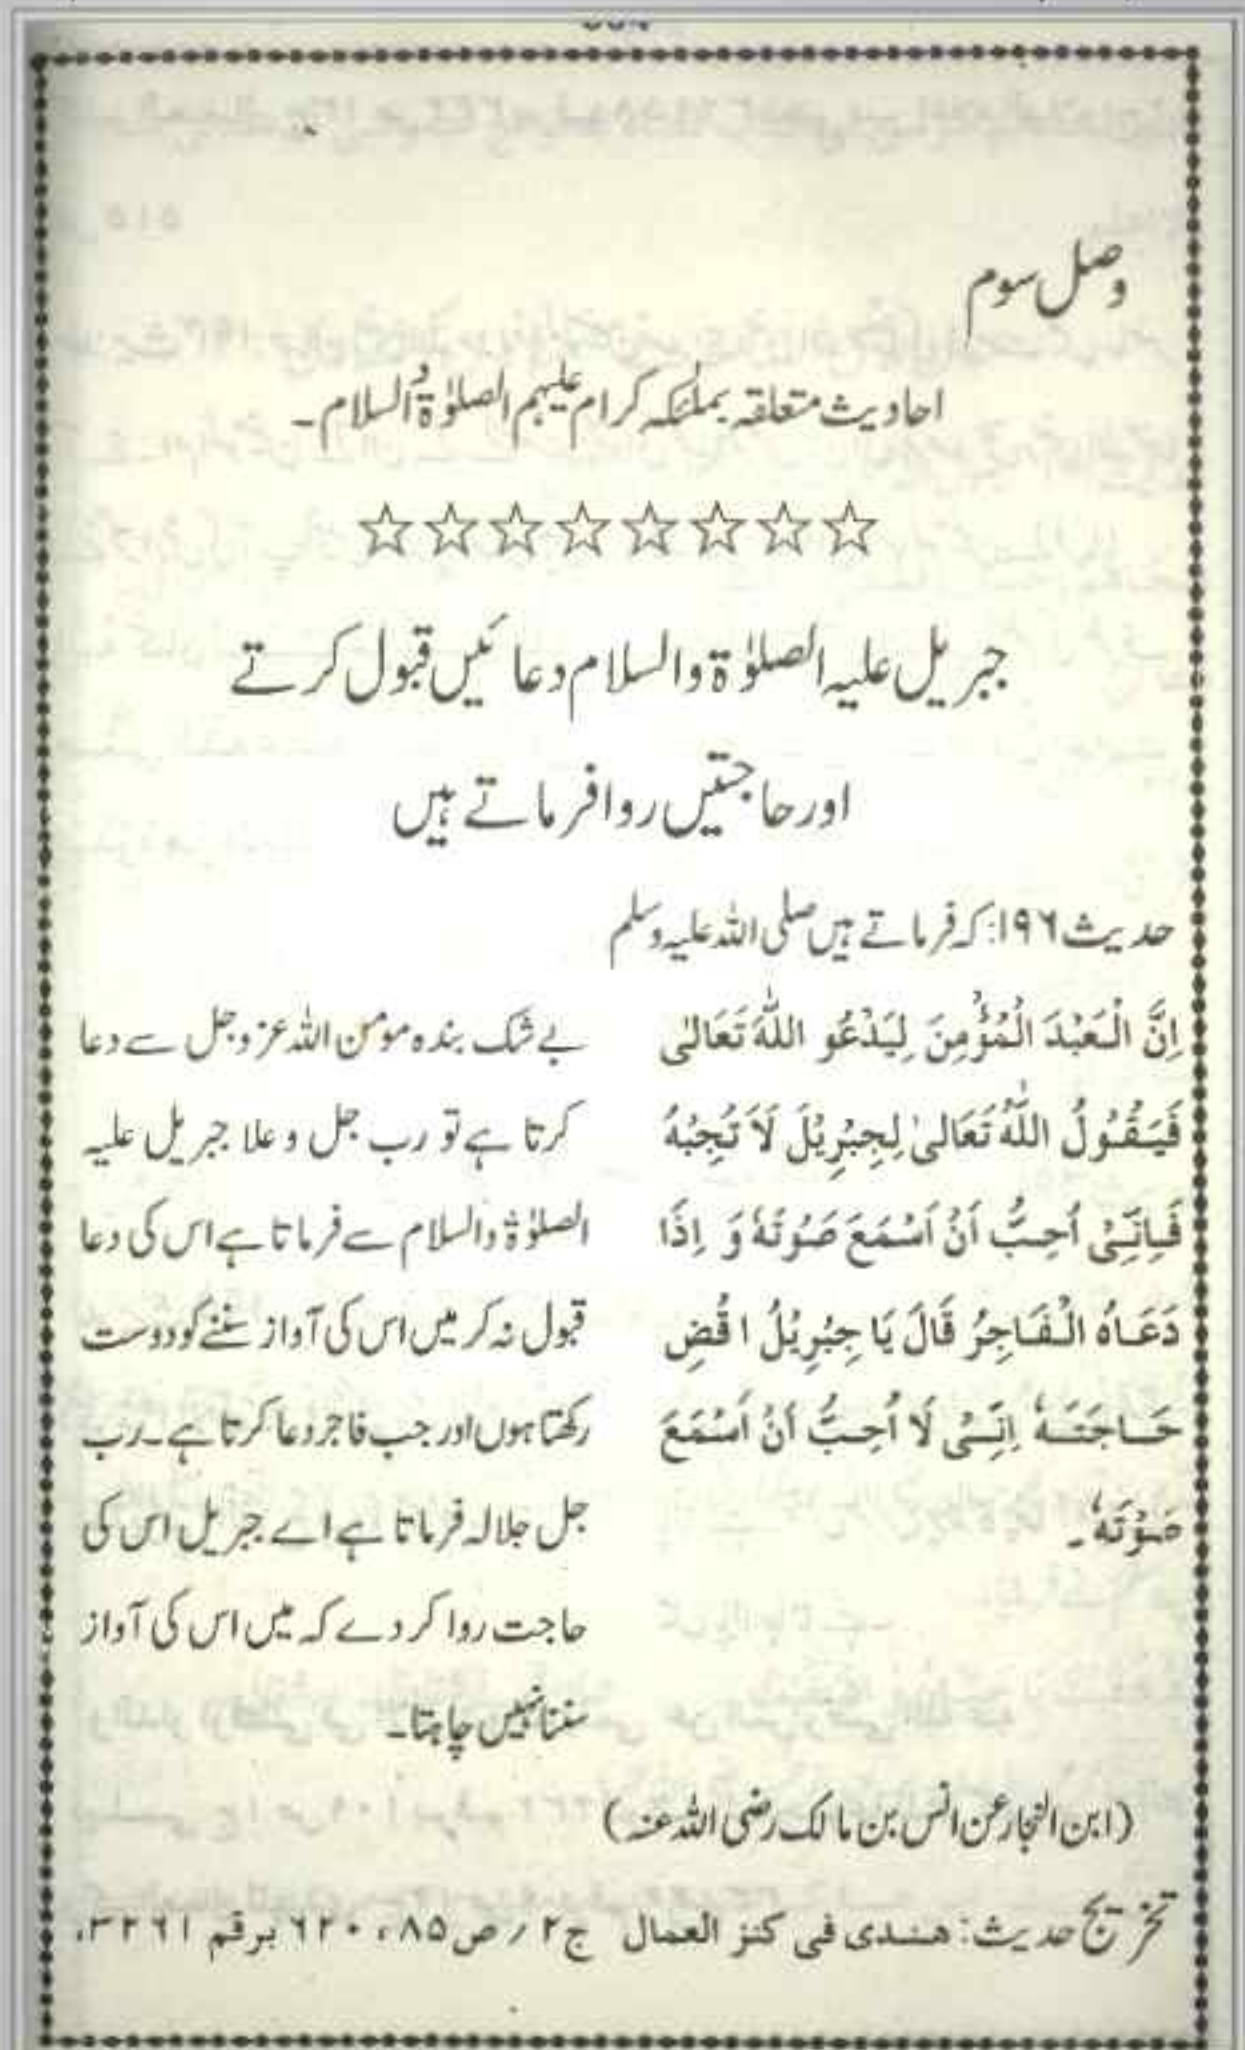 وصل سوم
احادیث متعلقہ بملٰئکہ کرام علیہم الصلوٰۃ والسلام۔
☆☆☆☆☆☆☆☆
جبریل علیہ الصلوٰۃ والسلام دعائیں قبول کرتے
اور حاجتیں روا فرماتے ہیں
حدیث ۱۹۶: کہ فرماتے ہیں صلی اللہ علیہ وسلم
اِنَّ الْعَبْدَ الْمُؤْمِنَ لِيَدْعُو اللّٰهَ تَعَالٰى
فَيَقُوْلُ اللّٰهُ تَعَالىٰ لِجِبْرِيْلَ لَا تُجِبْهُ
فَاِنِّىْ اُحِبُّ اَنْ اَسْمَعَ صَوْتَهٗ وَ اِذَا
دَعَاهُ الْفَاجِرُ قَالَ يَا جِبْرِيْلُ اقْضِ
حَاجَتَهٗ اِنِّىْ لَا اُحِبُّ اَنْ اَسْمَعَ
صَوْتَهٗ۔
بے شک بندہ مومن اللہ عزوجل سے دعا
کرتا ہے تو رب جل و علا جبریل علیہ
الصلوٰۃ والسلام سے فرماتا ہے اس کی دعا
قبول نہ کر میں اس کی آواز سننے کو دوست
رکھتا ہوں اور جب فاجر دعا کرتا ہے۔ رب
جل جلالہ فرماتا ہے اے جبریل اس کی
حاجت روا کر دے کہ میں اس کی آواز
سننا نہیں چاہتا۔
(ابن النجار عن انس بن مالک رضی اللہ عنہ)
تخریج حدیث: ھندی فی کنز العمال ج۲ / ص ۸۵، ۶۲۰ برقم ۳۲۶۱،